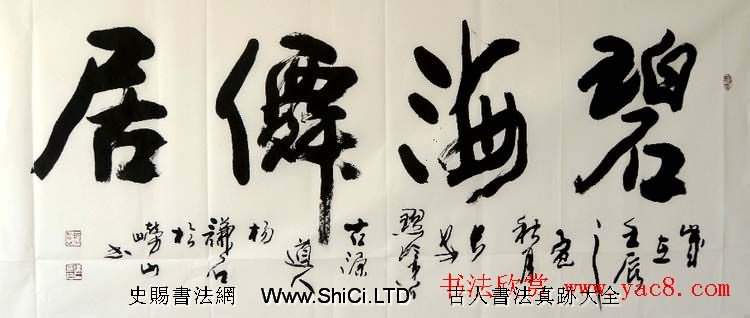 碧海僊居
歲在
壬辰
之
秋月
古源
道人
楊
謙
於
嶗山
書
书法欣赏 www.yac8.com
史賜書法網 Www.ShiCi.LTD 古人書法真跡大全